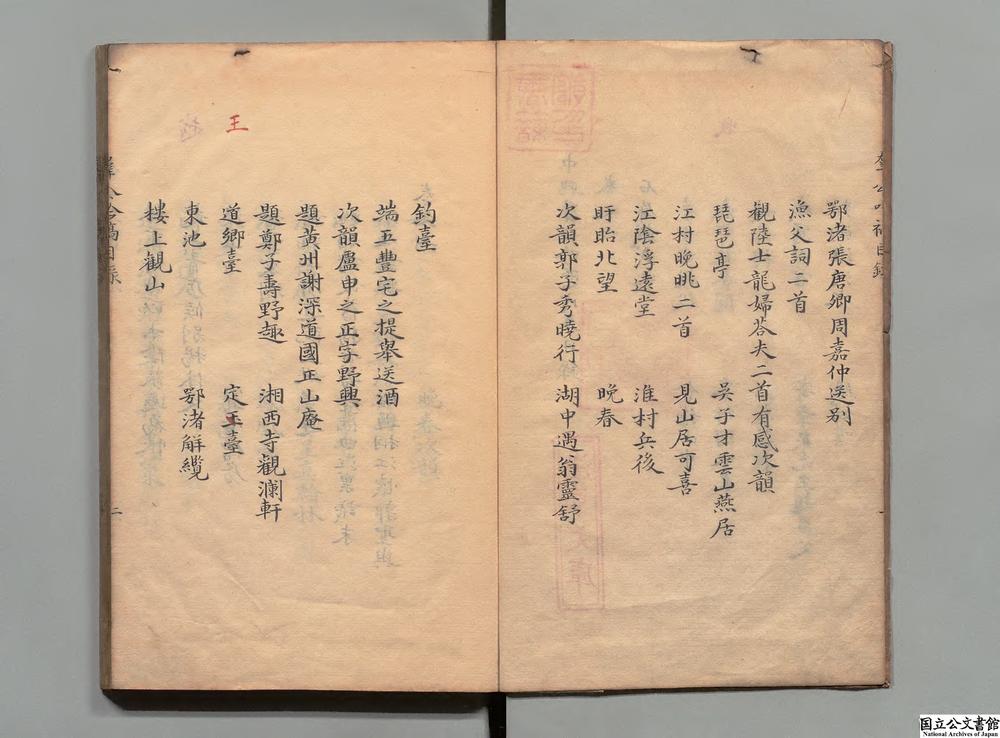 鄂渚張唐卿周嘉仲送別
漁父詞二首
觀陸士龍婦荅夫二首有感次韻
琵琶亭　吳子才雲山燕居
江村晚眺二首　見山居可喜
江陰浮遠堂　淮村兵後
盱眙北望　晚春
次韻郭子秀曉行　湖中遇翁靈舒
釣臺
端五豐宅之提舉送酒
次韻盧申之正字野興
題黃州謝深道國正山庵
題鄭子壽野趣　湘西寺觀瀾軒
王
道鄉臺　定王臺
東池　鄂渚解纜
樓上觀山
二
国立公文書館
National Archives of Japan